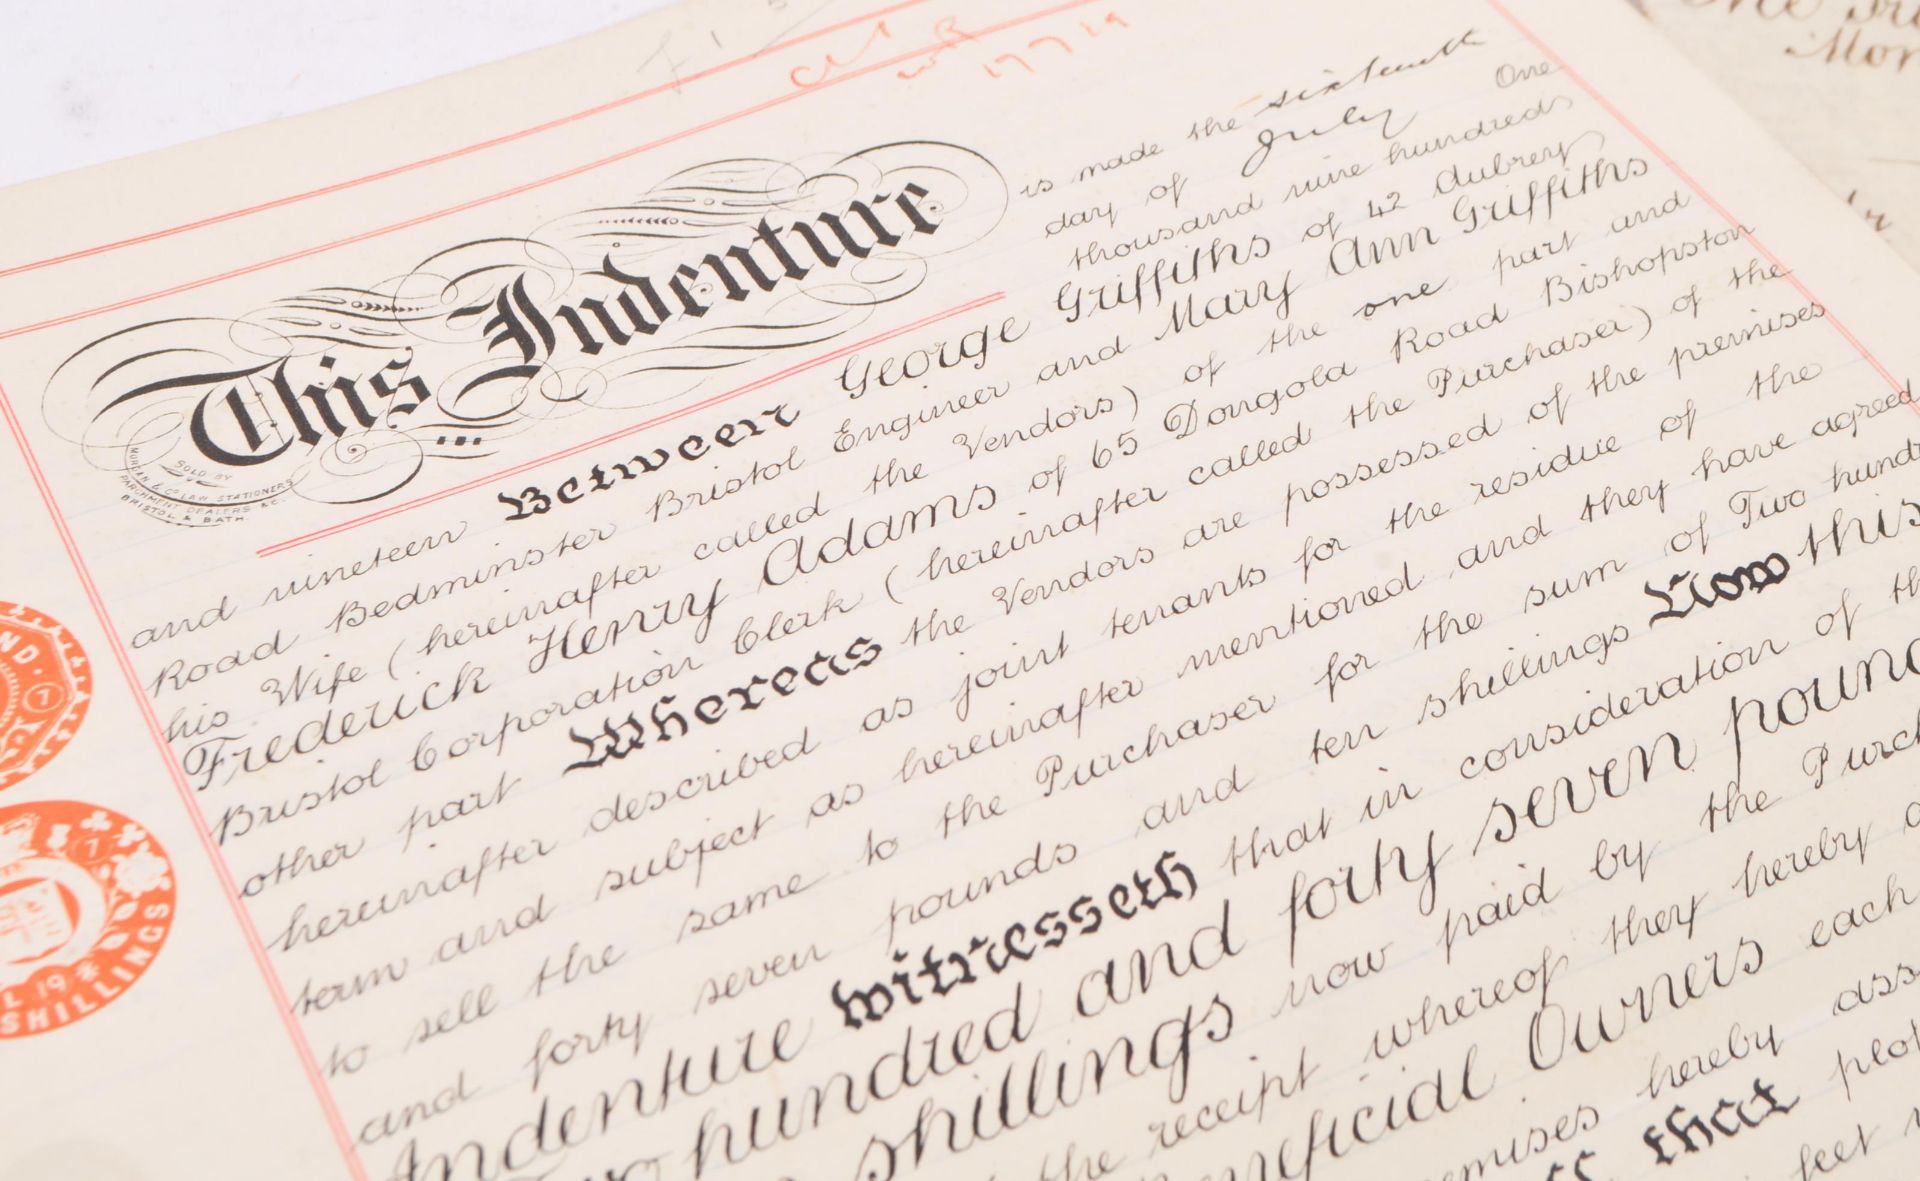 is made the sixteenth
day of July One
thousand nine hundred
This Indenture
SOLD BY
MORGAN & Co LAW STATIONERS
PARCHMENT DEALERS &c.
BRISTOL & BATH.
and nineteen Between George Griffiths of 42 Aubrey
Road Bedminster Bristol Engineer and Mary Ann Griffiths
his Wife (hereinafter called the Vendors) of the one part and
Frederick Henry Adams of 65 Dongola Road Bishopston
Bristol Corporation Clerk (hereinafter called the Purchaser) of the
other part Whereas the Vendors are possessed of the premises
hereinafter described as joint tenants for the residue of the
term and subject as hereinafter mentioned and they have agreed
to sell the same to the Purchaser for the sum of Two
and forty seven pounds and ten shillings Now this
Indenture witnesseth that in consideration of
hundred and forty seven
shillings now paid by the
the receipt whereof they hereby
Beneficial Owners each
hereby
that plot
feet
7
7
SHILLINGS